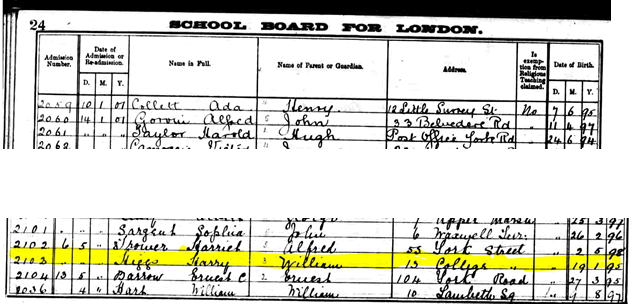 24 SCHOOL BOARD FOR LONDON.
Admission Number. Date of Admission or Re-admission. Name in Full. Name of Parent or Guardian. Address. Is exemption from Religious Teaching claimed. Date of Birth.
D. M. Y. D. M. Y.
2059 10 1 01 Collett Ada " Henry 12 Little Surrey St. No 7 6 95
2060 14 1 01 Alfred John 33 Belvedere Rd " 11 4 97
2061 " " " Taylor Harold Hugh Post Office York Rd 24 6 94
2062
2101 " " Sargent Sophia John 6 Maxwell Ter. 26 2 96
2102 6 5 " Trower Harriet Alfred 55 York Street 2 5 98
2103 " " Higgs Harry William 13 College " 19 1 95
2104 13 5 " Barrow Ernest C Ernest 104 York Road " 27 3 95
2036 4 " Hart William William 10 Lambeth Sq 8 97